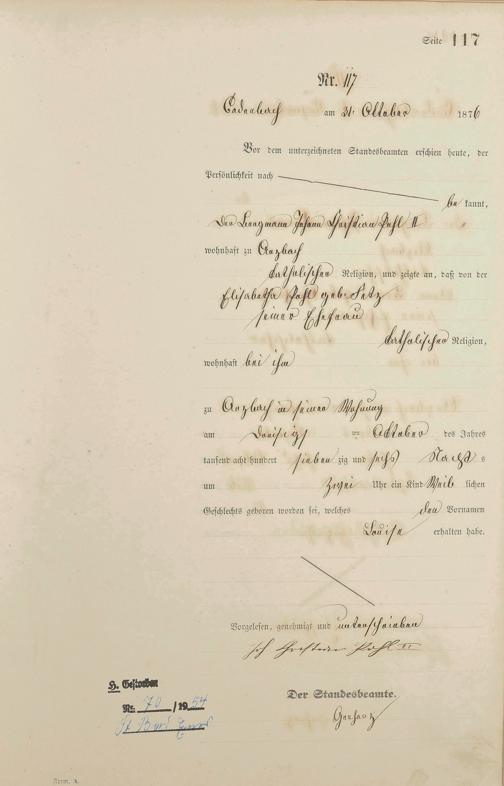 Seite 117
Nr. 117
Cadenbach am 31. Oktober 1876
Vor dem unterzeichneten Standesbeamten erschien heute, der
Persönlichkeit nach
be kannt,
der Bergmann Johann Christian Pohl II
wohnhaft zu Arzbach
katholischer Religion, und zeigte an, daß von der
Elisabetha Pohl geb.
seiner Ehefrau
katholischer Religion,
wohnhaft bei ihm
zu Arzbach in seiner Wohnung
am dreißigs ten Oktober des Jahres
tausend acht hundert sieben zig und sechs Nachts
um zwei Uhr ein Kind Weib lichen
Geschlechts geboren worden sei, welches den Vornamen
Louise erhalten habe.
Vorgelesen, genehmigt und unterschrieben
Christian Pohl II
Der Standesbeamte.
H. Gestorben
Nr. 70 / 19 54
St Bad Ems
Form. A.